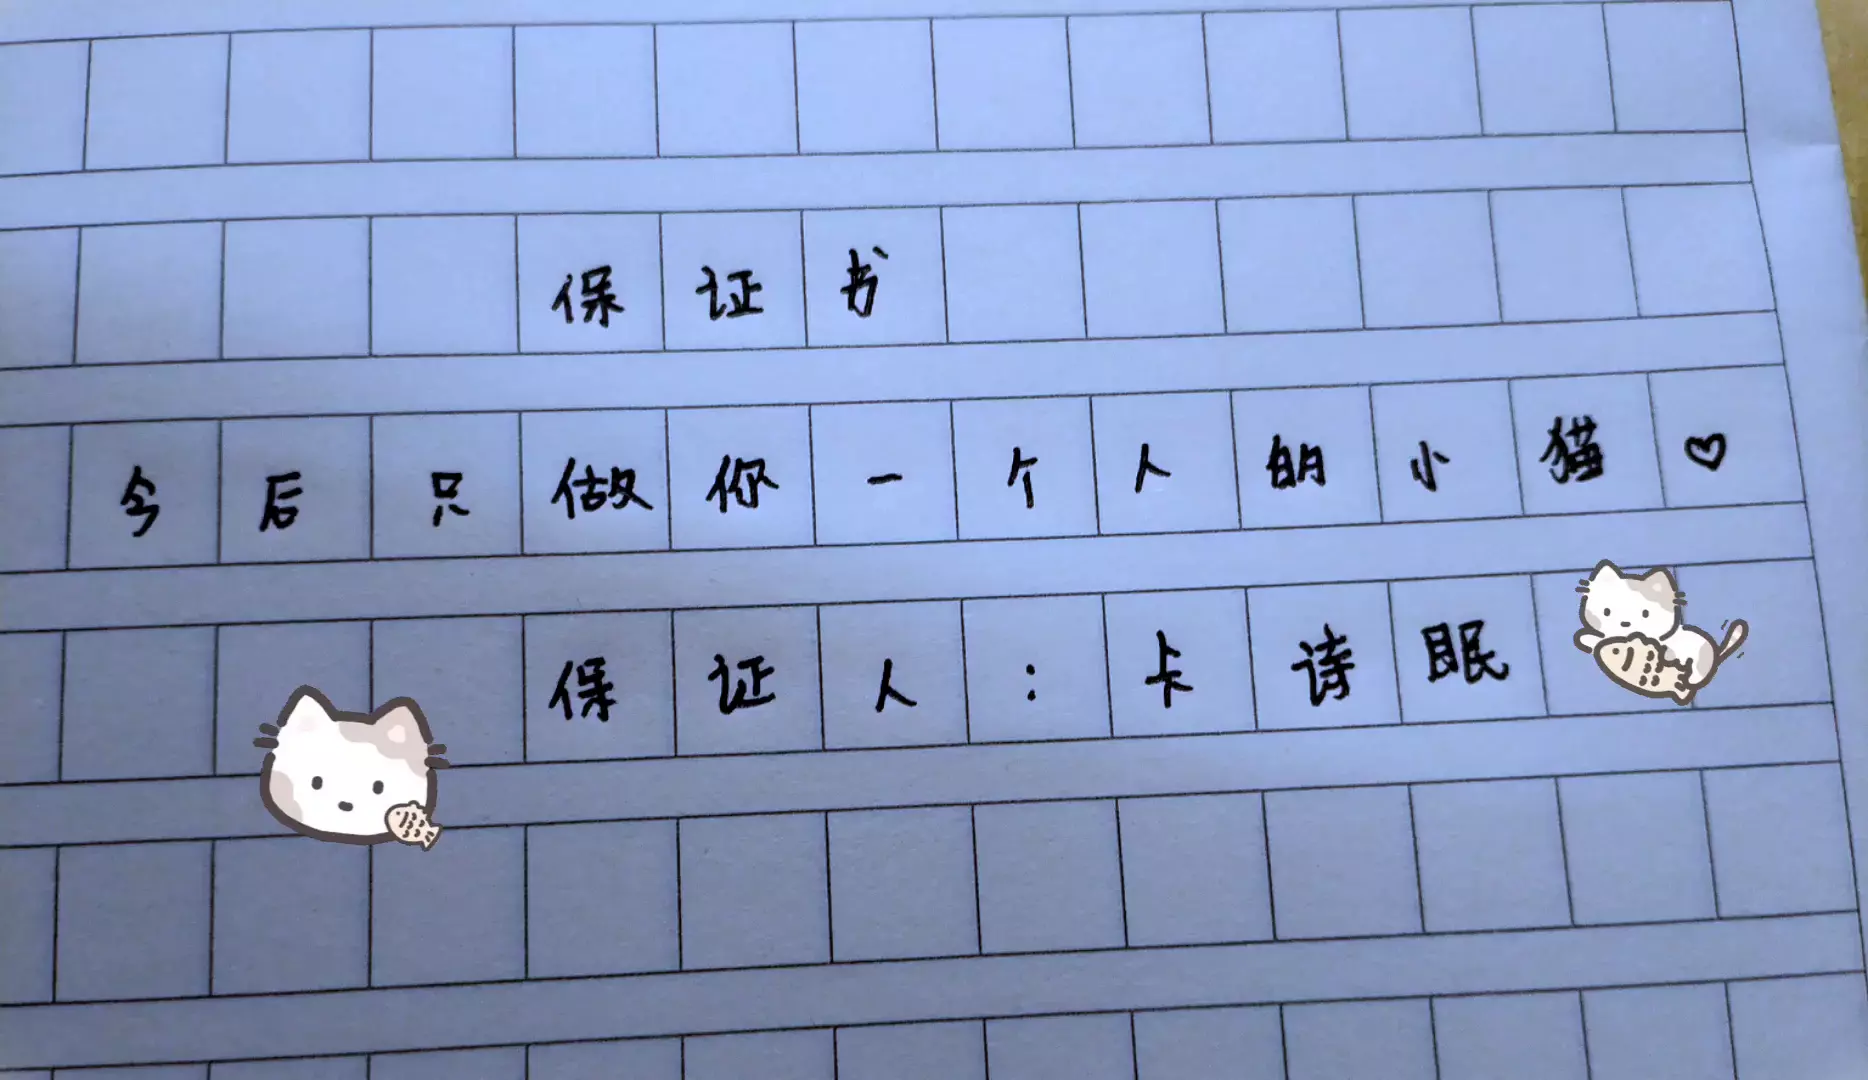 保证书
今后只做你一个人的小猫♡
保证人:卡诗眠